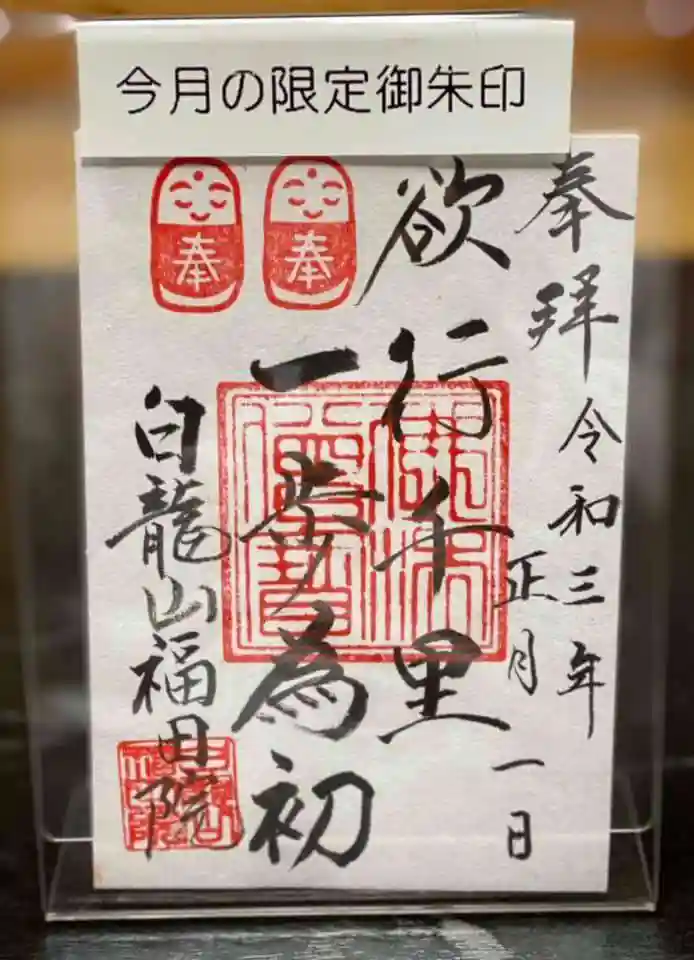 今月の限定御朱印
奉拝 令和三年
正月一日
欲行千里
一歩為初
奉
奉
白龍山福田院